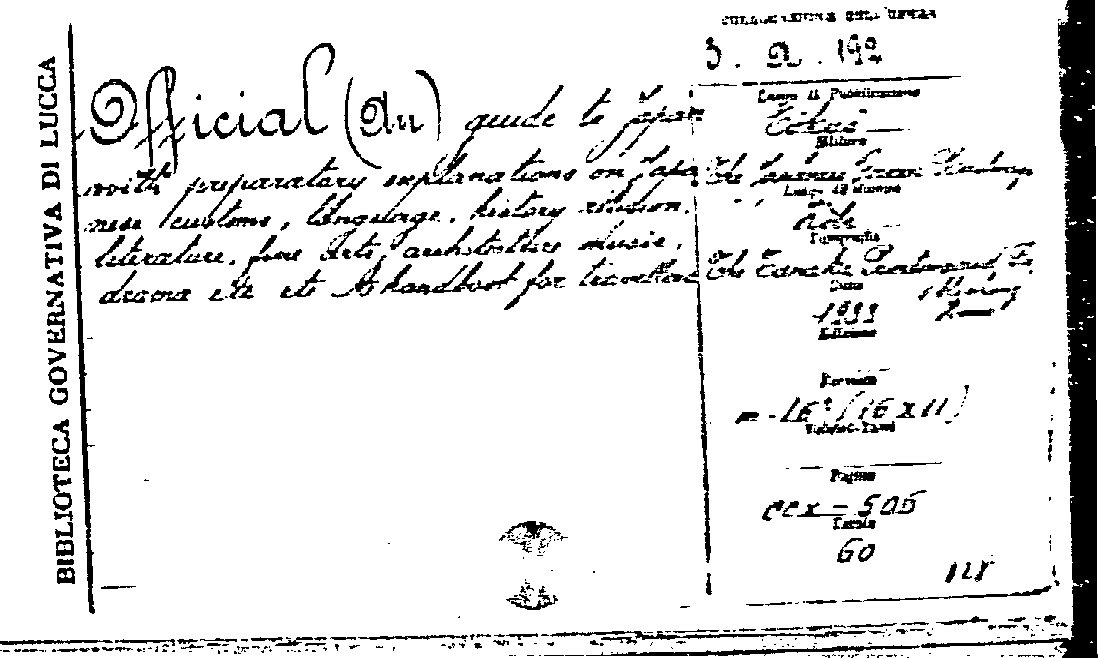 BIBLIOTECA GOVERNATIVA DI LUCCA
Official (An) guide to Japan
with preparatory explanations on Japa
nese customs, language, history religion,
literature, fine arts, architecture music,
drama etc etc A handbook for travellers
COLLOCAZIONE DELL'OPERA
3. a. 192
Luogo di Pubblicazione
Tokio
Editore
The Railway
Luogo di stampa
Tipografia
The
Data
1933
Edizione
Formato
in-16° (16x11)
Pagine
ccx - 505
Tavole
60
128